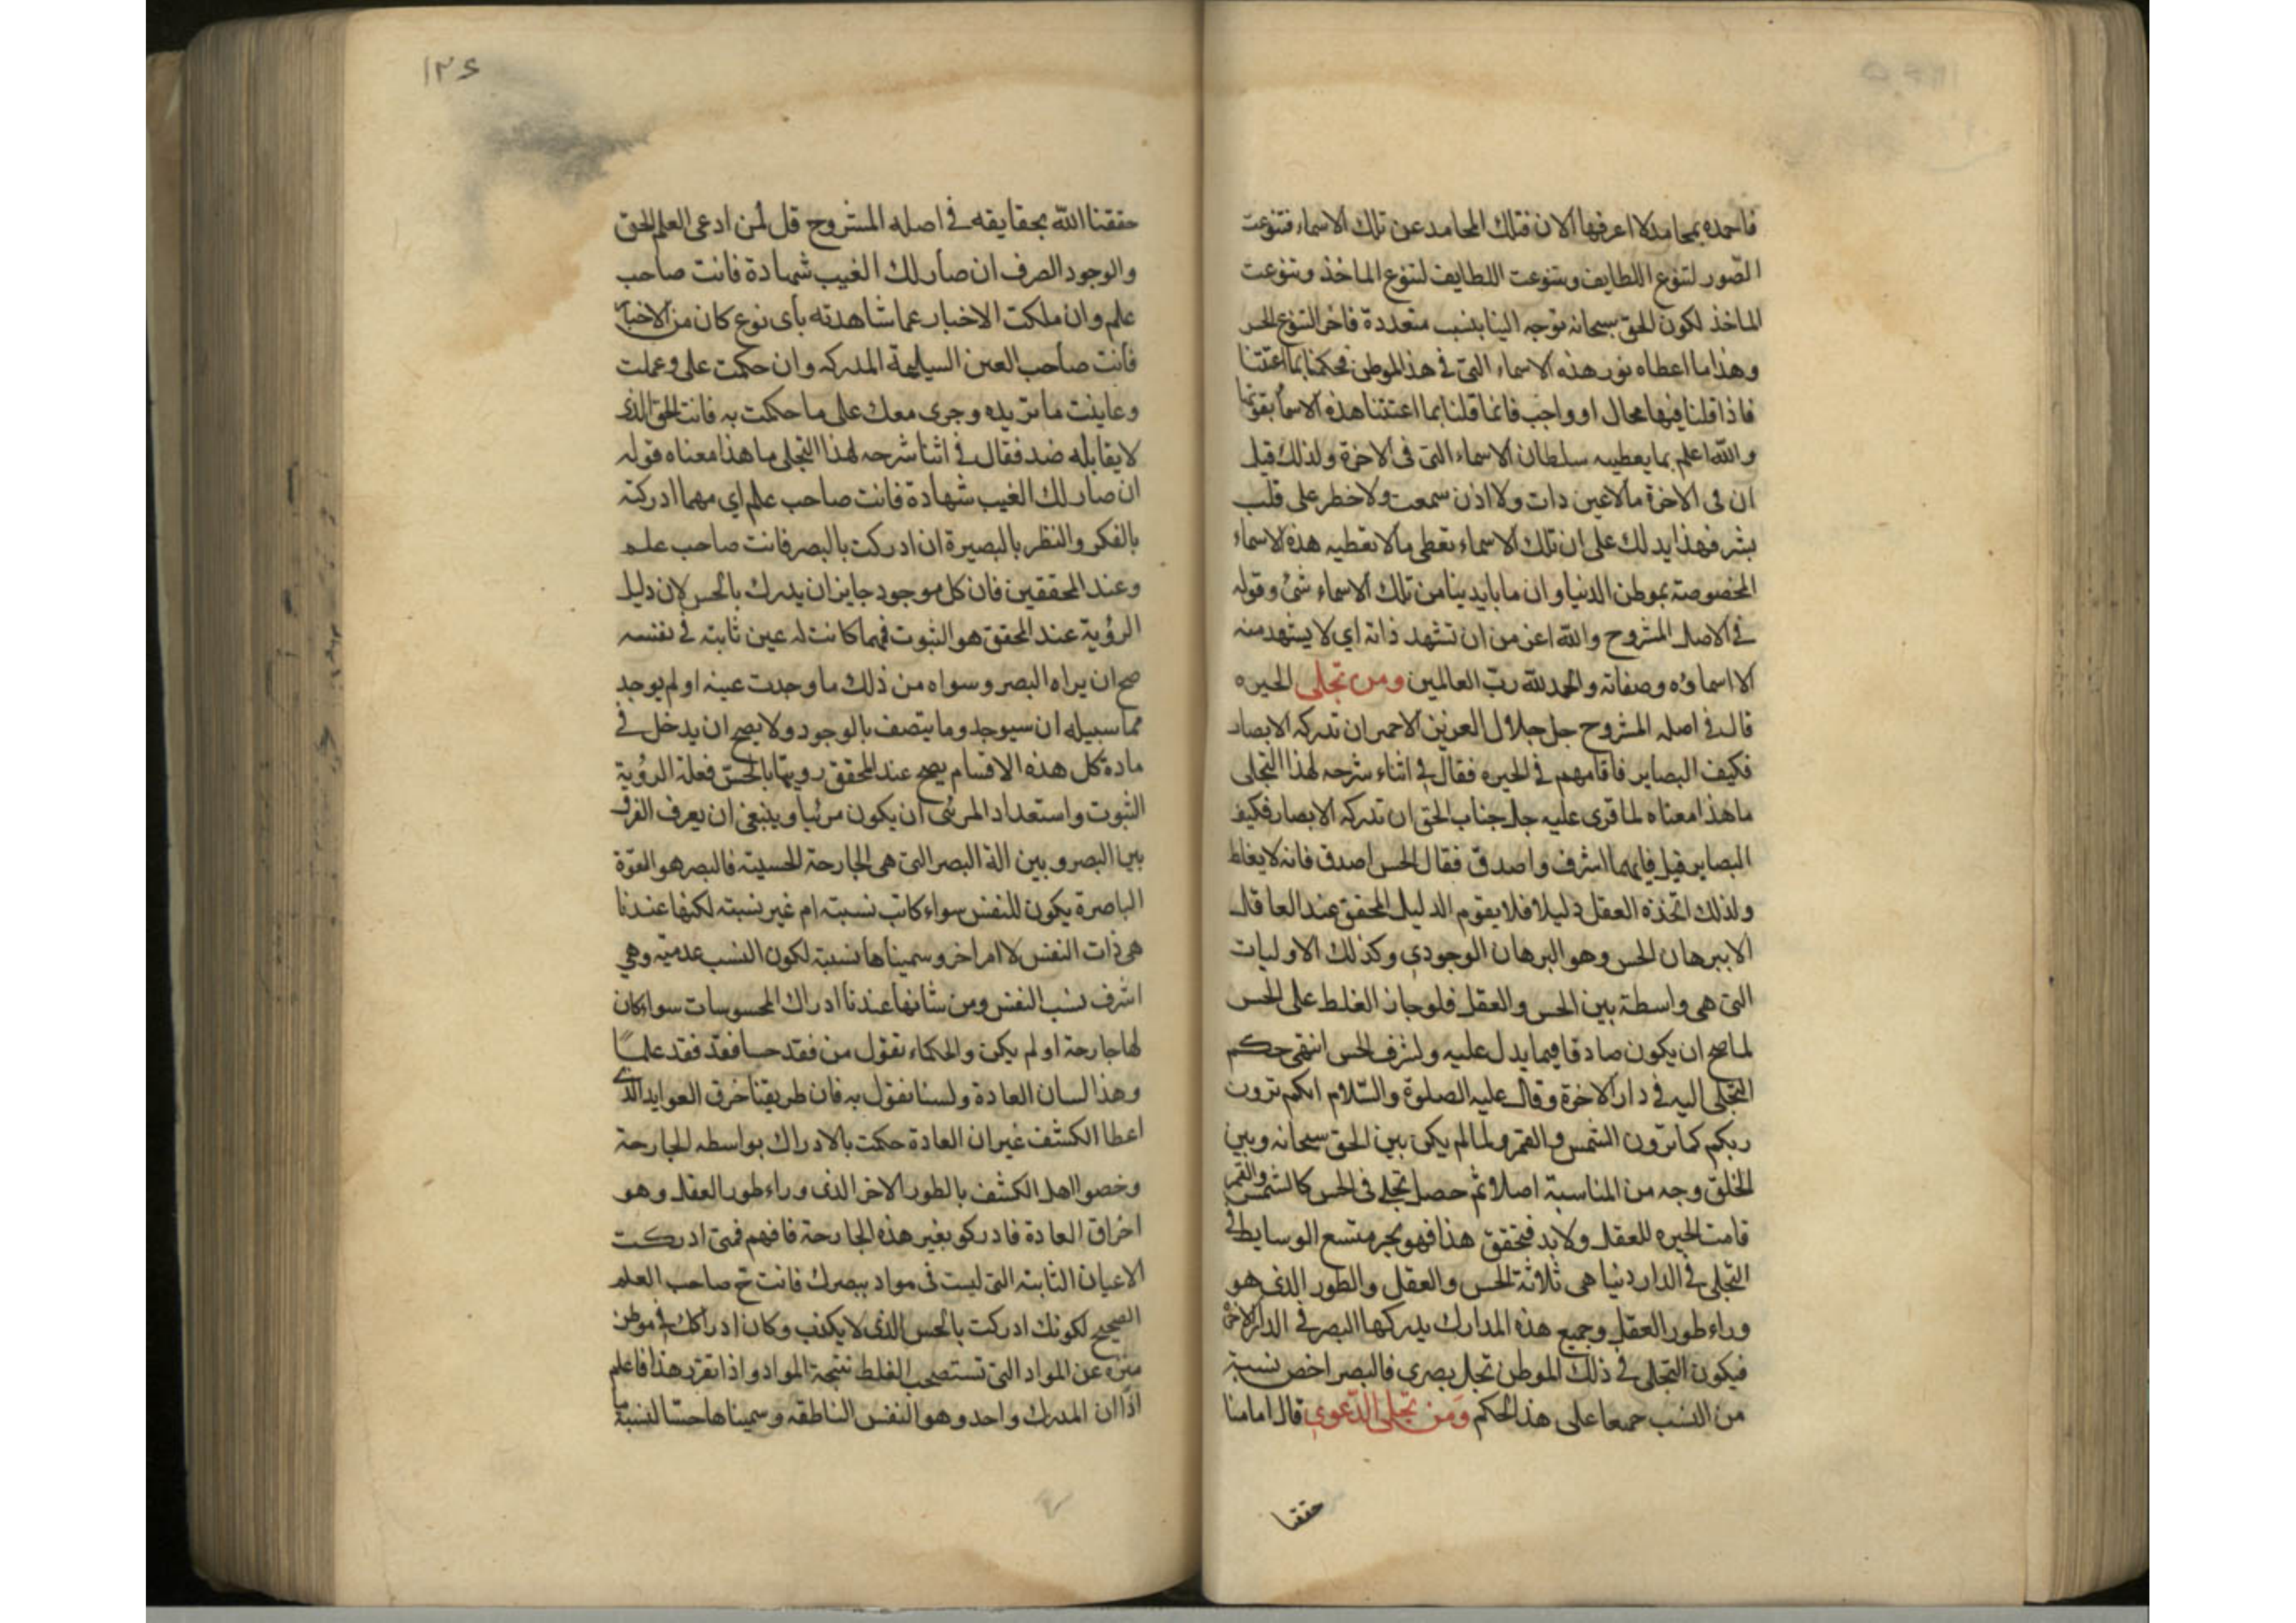 فاحمده بمحامد لا اعرفها الان فتلك المحامد عن تلك الاسماء فتنوعت
الصّور لتنوع اللطايف وتنوعت اللطايف لتنوع الماخذ وتنوعت
الماخذ لكون الحق سبحانه توجه الينا بنسب متعددة فاخر التنوع الحس
وهذا ما اعطاه نور هذه الاسماء التى فى هذا الموطن فحكمنا بما اعتتنا
فاذا قلنا فيها محال او واجب فانما قلنا بما اعتتنا هذه الاسماء بقوتها
والله اعلم بما يعطيه سلطان الاسماء التى فى الاخرة ولذلك قيل
ان فى الاخرة مالا عين رات ولا اذن سمعت ولا خطر على قلب
بشر فهذا يدلك على ان تلك الاسماء تعطى مالا تعطيه هذه الاسماء
المخصوصة بموطن الدنيا وان ما بايدينا من تلك الاسماء شئ وقوله
فى الاصل المشروح والله اعز من ان تشهد ذاته اي لا يشهد منه
الا اسماؤه وصفاته والحمد لله ربّ العالمين ومن تجلى الحيره
قال فى اصله المشروح جل جلال العزيز الاحمى ان تدركه الابصار
فكيف البصاير فاقامهم فى الحيره فقال فى اثناء شرحه لهذا التجلى
ما هذا معناه لما قرى عليه جل جناب الحق ان تدركه الابصار فكيف
البصاير قيل فايهما اشرف واصدق فقال الحس اصدق فانه لا يغلط
ولذلك اتخذه العقل دليلا فلا يقوم الدليل المحقق عند العاقل
الا ببرهان الحس وهو البرهان الوجودي وكذلك الاوليات
التى هى واسطة بين الحس والعقل فلو جاز الغلط على الحس
لما صح ان يكون صادقا فيما يدل عليه ولشرف الحس انتهى حكم
التجلى اليه فى دار الاخرة وقال عليه الصلوة والسّلام انكم ترون
ربكم كما ترون الشمس والقمر ولما لم يكن بين الحق سبحانه وبين
الخلق وجه من المناسبة اصلا ثم حصل تجلى فى الحس كالشمس والقمر
قامت الحيره للعقل ولابد فتحقق هذا فهو بحر متسع الوسايط فى
التجلى فى الدار دنيا هى ثلاثة الحس والعقل والطور الذى هو
وراء طور العقل وجميع هذه المدارك يدركها البصر فى الدار الاخرة
فيكون التجلى فى ذلك الموطن تجل بصرى فالبصر اخص نسبة
من النسب جمعا على هذا الحكم وَمن تجلى الدّعوي قال امامنا
حققنا
١٢٤
حققنا الله بحقايقه فى اصله المشروح قل لمن ادعى العلم الحق
والوجود الصرف ان صار لك الغيب شهادة فانت صاحب
علم وان ملكت الاخبار عما شاهدته بأى نوع كان من الاخبار
فانت صاحب العين السليمة المدركه وان حكمت على وعملت
وعاينت ما تريده وجرى معك على ما حكمت به فانت الحق الذى
لا يقابله ضد فقال فى اثنا شرحه لهذا التجلى ما هذا معناه قوله
ان صار لك الغيب شهادة فانت صاحب علم اي مهما ادركته
بالفكر والنظر بالبصيرة ان ادركت بالبصر فانت صاحب علم
وعند المحققين فان كل موجود جايز ان يدرك بالحس لان دليل
الرؤية عند المحقق هو الثبوت فهما كانت له عين ثابته فى نفسه
صح ان يراه البصر وسواه من ذلك ما وجدت عينه او لم يوجد
مما سبيله ان سيوجد وما يتصف بالوجود ولا يصح ان يدخل فى
مادة كل هذه الاقسام يصح عند المحقق رويتها بالحس فعلة الرؤية
الثبوت واستعداد المرئى ان يكون مرئيا وينبغى ان يعرف الفرق
بين البصر وبين الة البصر التى هى الجارحة الحسية فالبصر هو القوّة
الباصرة يكون للنفس سواء كانت نسبة ام غير نسبة لكنها عندنا
هى ذات النفس لا امر اخر وسميناها نسبة لكون النسب عدمية وهي
اشرف نسب النفس ومن شانها عندنا ادراك المحسوسات سواء كان
لها جارحة او لم يكن والحكماء تقول من فقد حسا فقد فقد علما
وهذا لسان العادة ولسنا نقول به فان طريقنا خرق العوايد الذى
اعطا الكشف غير ان العادة حكمت بالادراك بواسطه الجارحة
وخصوا اهل الكشف بالطور الاخر الذى وراء طور العقل وهو
اخراق العادة فادركو بغير هذه الجارحة فافهم فمتى ادركت
الاعيان الثابته التى ليست فى مواد ببصرك فانت ح صاحب العلم
الصحيح لكونك ادركت بالحس الذى لا يكذب وكان ادراكك فى موطن
منزه عن المواد التى تستصحب الغلط نتيجة المواد واذا تقرّر هذا فاعلم
اذًا ان المدرك واحد وهو النفس الناطقه وسميناها حسّا لنسبة ما